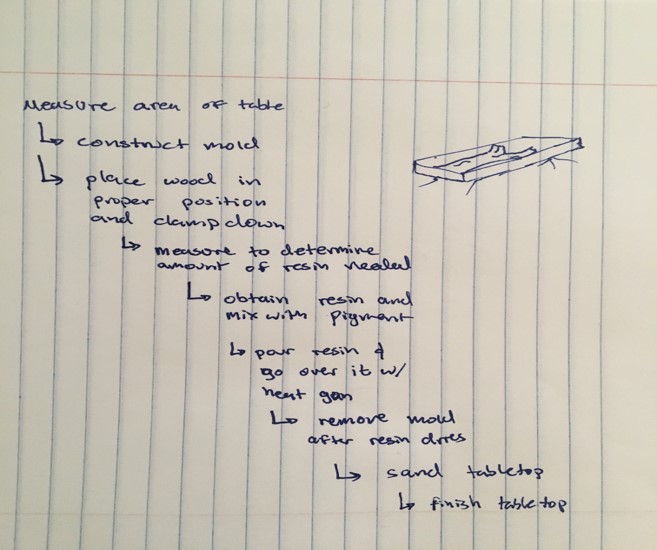 Measure area of table
construct mold
place wood in
proper position
and clamp down
measure to determine
amount of resin needed
obtain resin and
mix with pigment
pour resin &
go over it w/
heat gun
remove mold
after resin dries
sand tabletop
finish tabletop